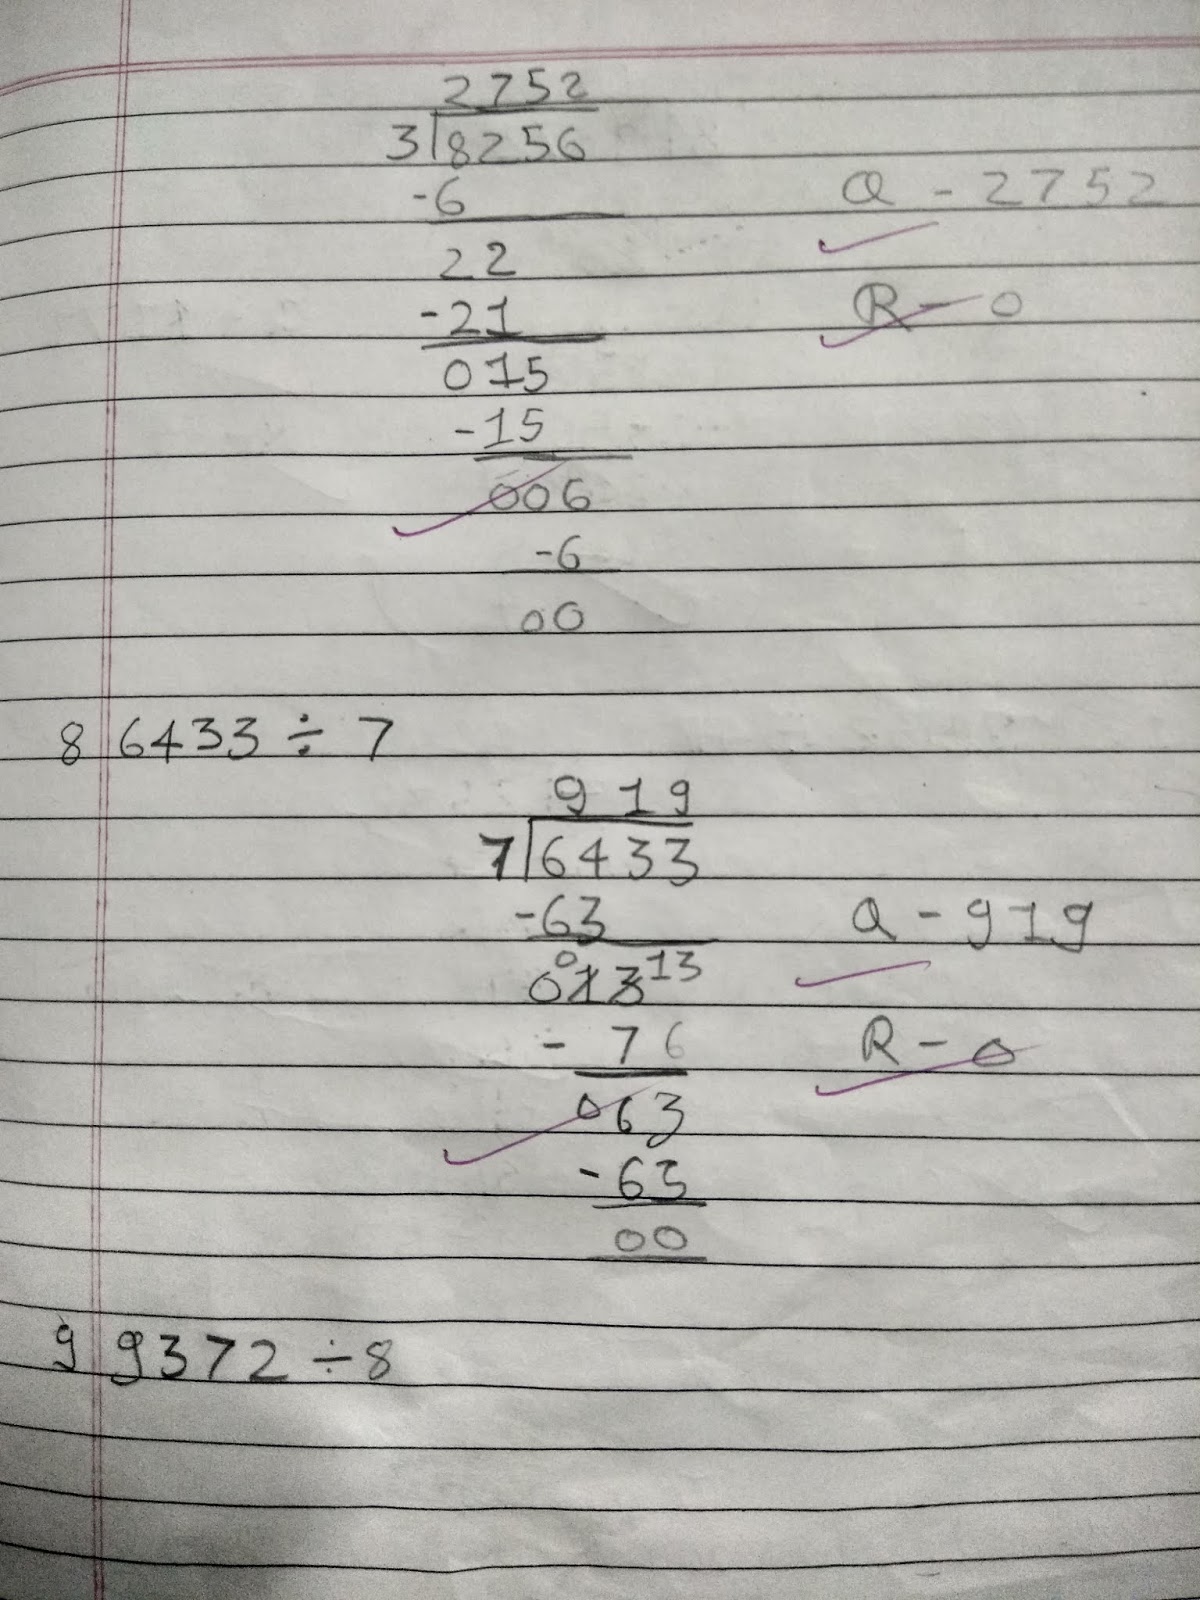 2752
3 8256
-6
Q - 2752
22
R - 0
-21
015
-15
006
-6
00
8 6433 ÷ 7
919
7 6433
-63
Q - 919
0 13
013
- 76
R - 0
063
-63
00
9 9372 ÷ 8